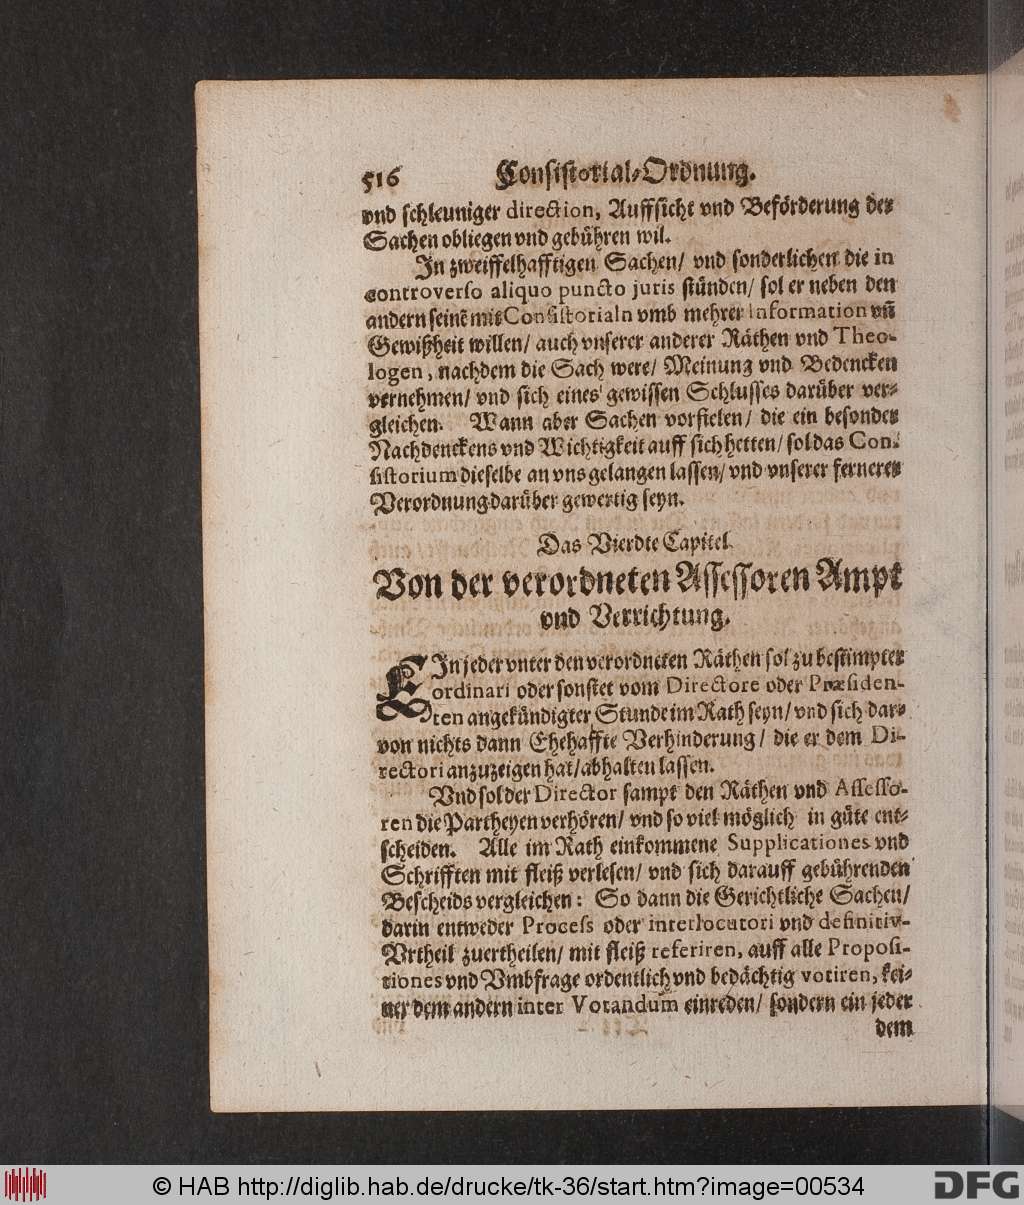 516 Consistorial-Ordnung.
vnd schleuniger direction, Auffsicht vnd Beförderung der
Sachen obliegen vnd gebühren wil.
In zweiffelhafftigen Sachen/ vnd sonderlichen die in
controverso aliquo puncto juris stünden/ sol er neben den
andern seinē mit Consistorialn vmb mehrer Information vñ
Gewißheit willen/ auch vnserer anderer Räthen vnd Theo-
logen, nachdem die Sach were/ Meinung vnd Bedencken
vernehmen/ vnd sich eines gewissen Schlusses darüber ver-
gleichen. Wann aber Sachen vorfielen/ die ein besonder
Nachdenckens vnd Wichtigkeit auff sich hetten/ sol das Con-
sistorium dieselbe an vns gelangen lassen/ vnd vnserer ferneren
Verordnung darüber gewertig seyn.
Das Vierdte Capitel.
Von der verordneten Assessoren Ampt
vnd Verrichtung.
EIn jeder vnter den verordneten Räthen sol zu bestimpter
ordinari oder sonstet vom Directore oder Præsiden-
ten angekündigter Stunde im Rath seyn/ vnd sich dar-
von nichts dann Ehehaffte Verhinderung/ die er dem Di-
rectori anzuzeigen hat/ abhalten lassen.
Vnd sol der Director sampt den Räthen vnd Assesso-
ren die Partheyen verhören/ vnd so viel möglich in güte ent-
scheiden. Alle im Rath einkommene Supplicationes vnd
Schrifften mit fleiß verlesen/ vnd sich darauff gebührenden
Bescheids vergleichen: So dann die Gerichtliche Sachen/
darin entweder Process oder interlocutori vnd definitiv-
Vrtheil zuertheilen/ mit fleiß referiren, auff alle Proposi-
tiones vnd Vmbfrage ordentlich vnd bedächtig votiren, kei-
ner dem andern inter Votandum einreden/ sondern ein jeder
dem
© HAB http://diglib.hab.de/drucke/tk-36/start.htm?image=00534
DFG